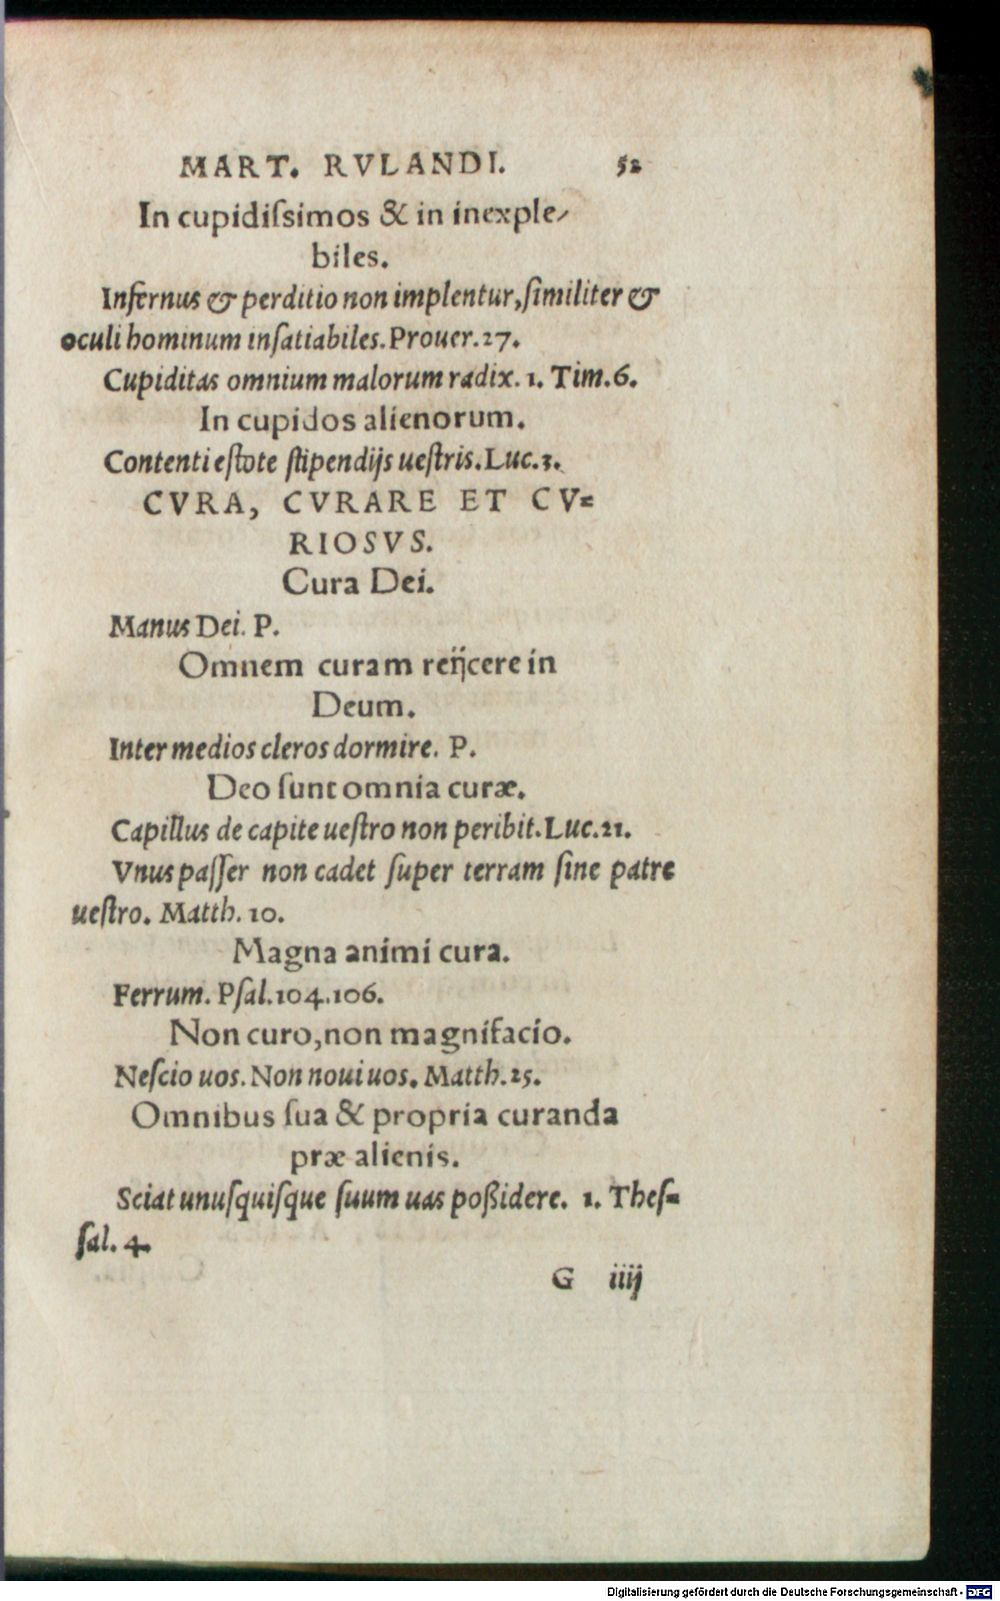 MART. RVLANDI. 52
In cupidiſsimos & in inexple-
biles.
Infernus & perditio non implentur, ſimiliter &
oculi hominum inſatiabiles. Prouer. 27.
Cupiditas omnium malorum radix. 1. Tim. 6.
In cupidos alienorum.
Contenti eſtote ſtipendijs ueſtris. Luc. 3.
CVRA, CVRARE ET CV=
RIOSVS.
Cura Dei.
Manus Dei. P.
Omnem curam reijcere in
Deum.
Inter medios cleros dormire. P.
Deo ſunt omnia curæ.
Capillus de capite ueſtro non peribit. Luc. 21.
Vnus paſſer non cadet ſuper terram ſine patre
ueſtro. Matth. 10.
Magna animi cura.
Ferrum. Pſal. 104. 106.
Non curo, non magnifacio.
Neſcio uos. Non noui uos. Matth. 25.
Omnibus ſua & propria curanda
præ alienis.
Sciat unuſquiſque ſuum uas poßidere. 1. Theſ=
ſal. 4.
G iiij
Digitalisierung gefördert durch die Deutsche Forschungsgemeinschaft - DFG